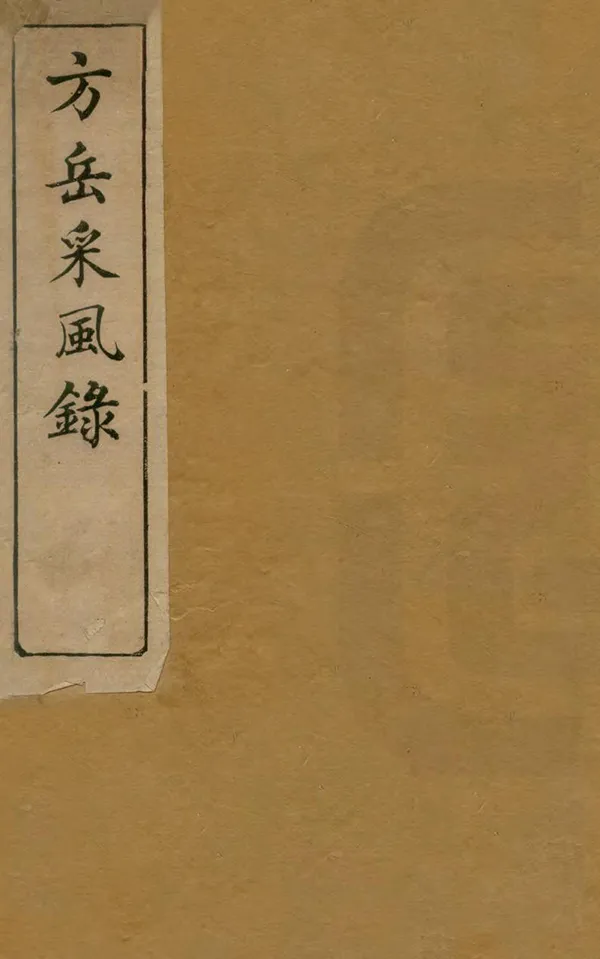 方岳采風錄